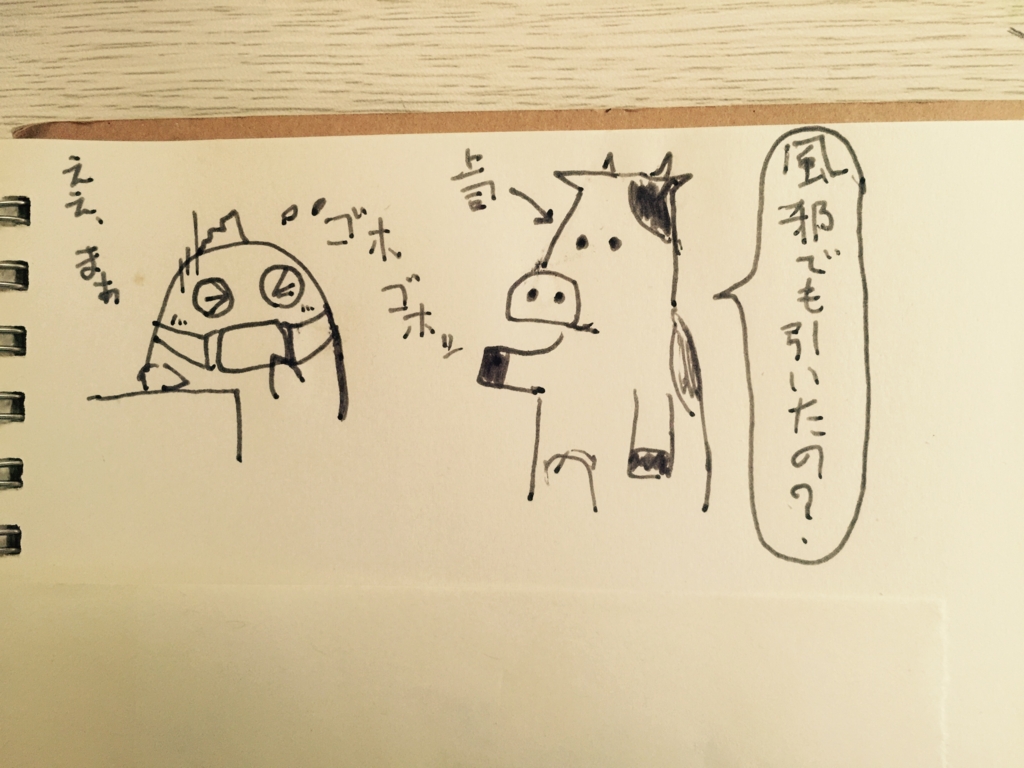 風邪でも引いたの?
上司
ゴホ
ゴホッ
ええ、
まぁ